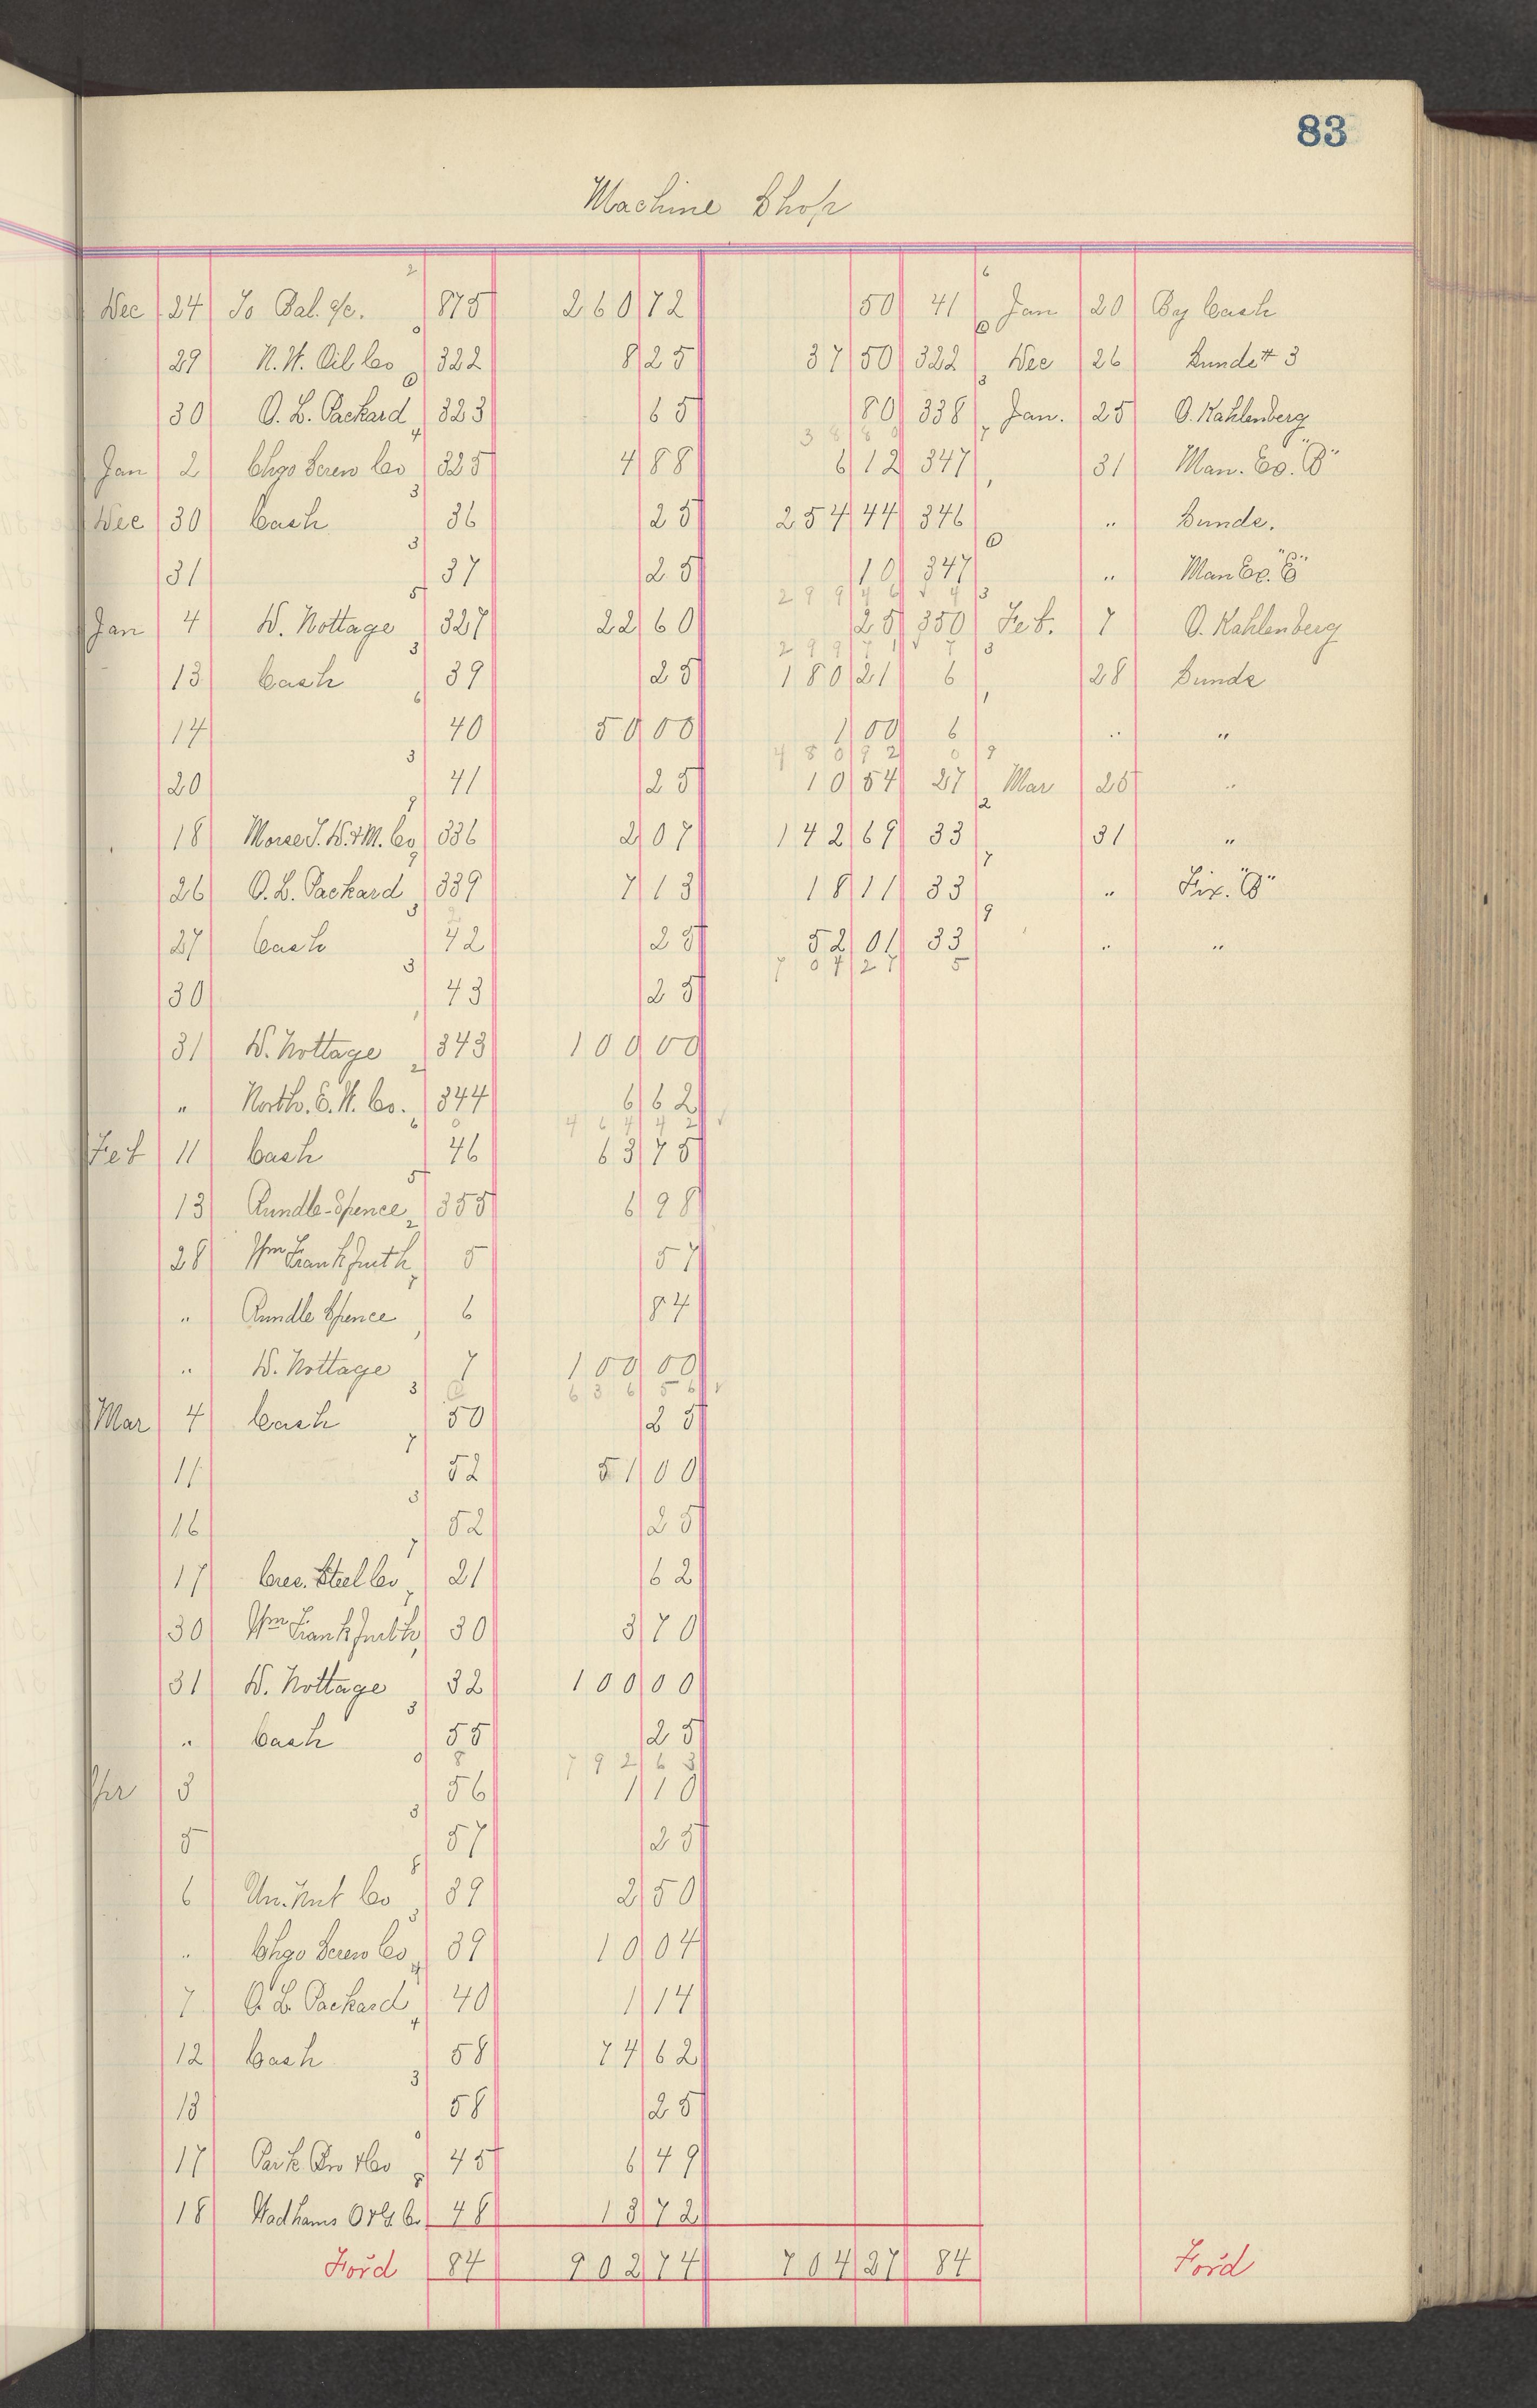 83
Machine Shop
Dec 24 To Bal. a/c. 875 260 72 50 41 Jan 20 By Cash
29 N.W. Oil Co 322 8 25 37 50 322 Dec 26 Sunde #3
30 O. L. Packard 323 65 80 338 Jan. 25 O. Kahlenberg
38 80
Jan 2 Chgo Screw Co 325 4 88 6 12 347 31 Man. Eq. "B"
Dec 30 Cash 36 25 254 44 346 " Sunde.
31 37 25 10 347 " Man Eq. "B"
299 46
Jan 4 W. Nottage 327 22 60 25 350 Feb. 7 O. Kahlenberg
299 71
13 Cash 39 25 180 21 6 28 Sunde
14 40 50 00 1 00 6 " "
480 92
20 41 25 10 54 27 Mar 25 "
18 Morse T. D. & M. Co 336 2 07 142 69 33 31 "
26 O. L. Packard 339 7 13 18 11 33 " Fix. "B"
27 Cash 42 25 52 01 33 " "
704 27
30 43 25
31 W. Nottage 343 100 00
" North. E. W. Co. 344 6 62
464 42
Feb 11 Cash 46 63 75
13 Rundle-Spence 355 6 98
28 Wm Frankfurth 5 57
" Rundle Spence 6 84
" W. Nottage 7 100 00
636 56
Mar 4 Cash 50 25
11 52 51 00
16 52 25
17 Cres. Steel Co 21 62
30 Wm Frankfurth 30 3 70
31 W. Nottage 32 100 00
" Cash 55 25
792 63
Apr 3 56 1 10
5 57 25
6 Un. Nut Co 39 2 50
" Chgo Screw Co 39 10 04
7 O. L. Packard 40 1 14
12 Cash 58 74 62
13 58 25
17 45 6 49
18 Wadhams O & G. Co 48 13 72
For'd 84 902 74 704 27 84 For'd